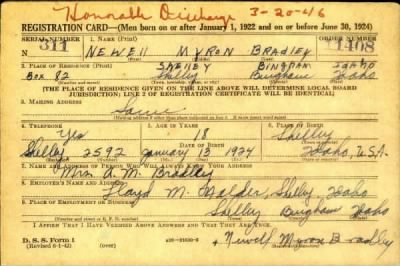 Honorable Discharge 3-20-46
REGISTRATION CARD—(Men born on or after January 1, 1922 and on or before June 30, 1924)
SERIAL NUMBER 1. NAME (Print) ORDER NUMBER
311 NEWELL MYRON BRADLEY 11408
(First) (Middle) (Last)
2. PLACE OF RESIDENCE (Print) SHELLEY BINGHAM IDAHO
Box 82 Shelley Bingham Idaho
[THE PLACE OF RESIDENCE GIVEN ON THE LINE ABOVE WILL DETERMINE LOCAL BOARD
JURISDICTION; LINE 2 OF REGISTRATION CERTIFICATE WILL BE IDENTICAL]
3. MAILING ADDRESS
Same
4. TELEPHONE 5. AGE IN YEARS 6. PLACE OF BIRTH
Yes 18 Shelley
DATE OF BIRTH
Shelley 2592 January 13 1924 Idaho, U.S.A.
7. NAME AND ADDRESS OF PERSON WHO WILL ALWAYS KNOW YOUR ADDRESS
Mrs. A. M. Bradley
8. EMPLOYER'S NAME AND ADDRESS
Floyd M. Shelley, Idaho
9. PLACE OF EMPLOYMENT OR BUSINESS
Shelley Bingham Idaho
I AFFIRM THAT I HAVE VERIFIED ABOVE ANSWERS AND THAT THEY ARE TRUE.
D. S. S. Form 1
(Revised 6-1-42) Newell Myron Bradley